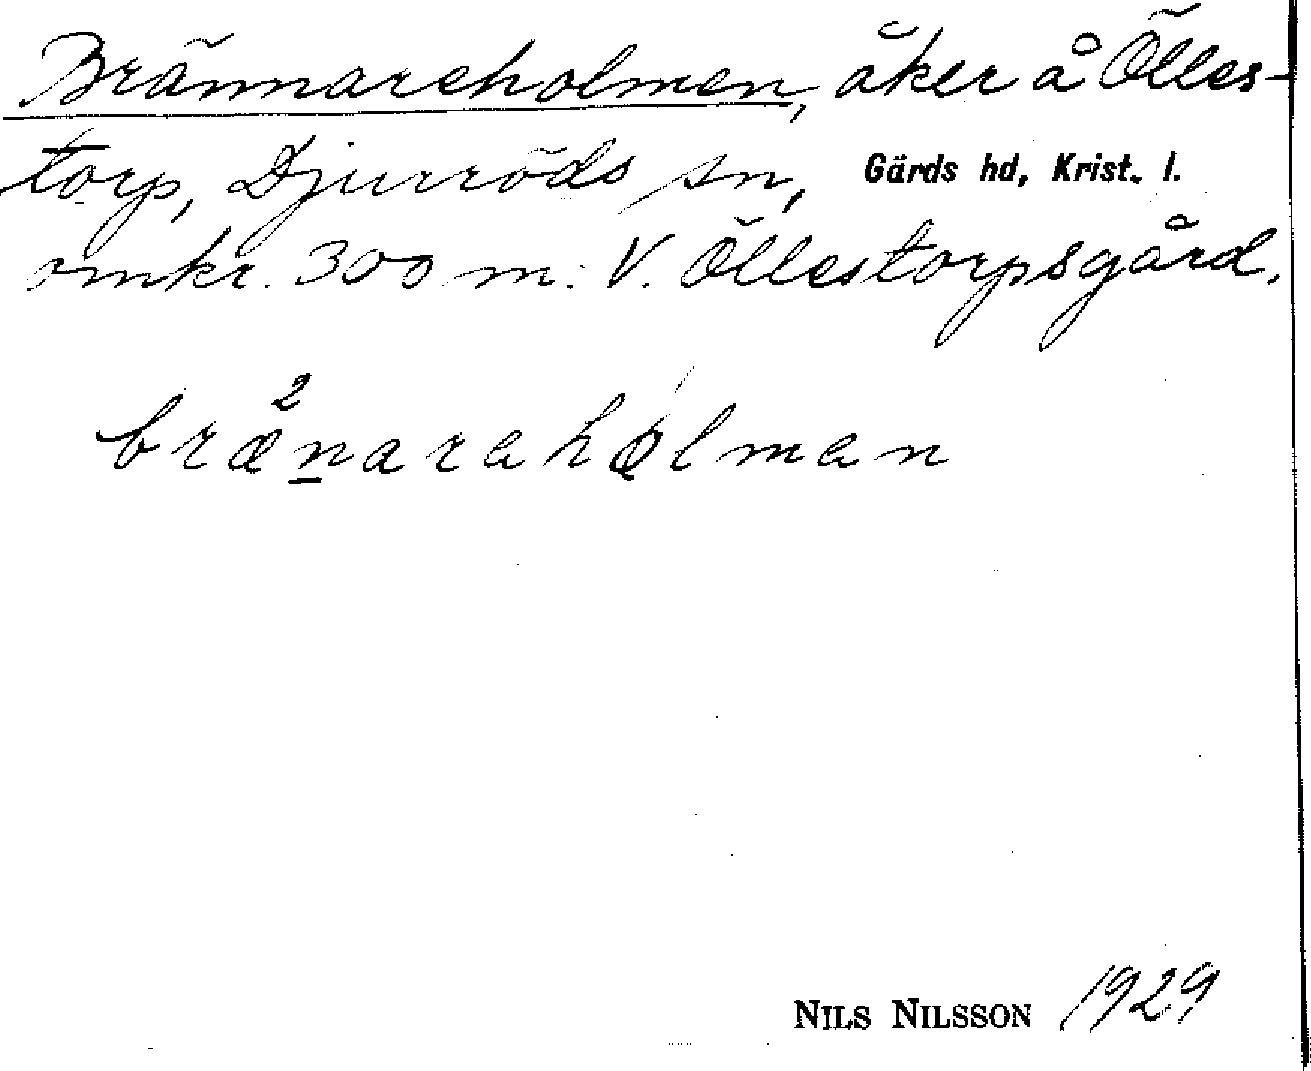 Brännareholmen, åker å Ölles-
torp, Djurröds sn, Gärds hd, Krist. l.
omkr. 300 m. V. Öllestorpsgård.
bræ²n̲arahǫlman
NILS NILSSON 1929